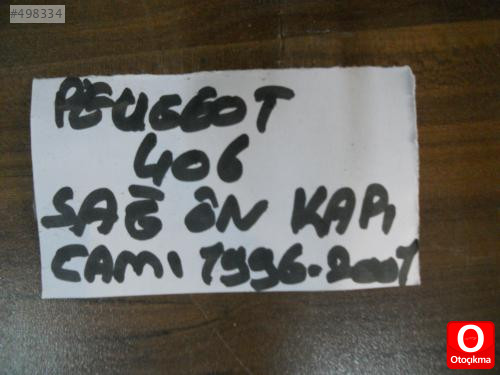 #498334
PEUGEOT
406
SAĞ ÖN KAPI
CAMI 1996-2001
O
Otoçıkma